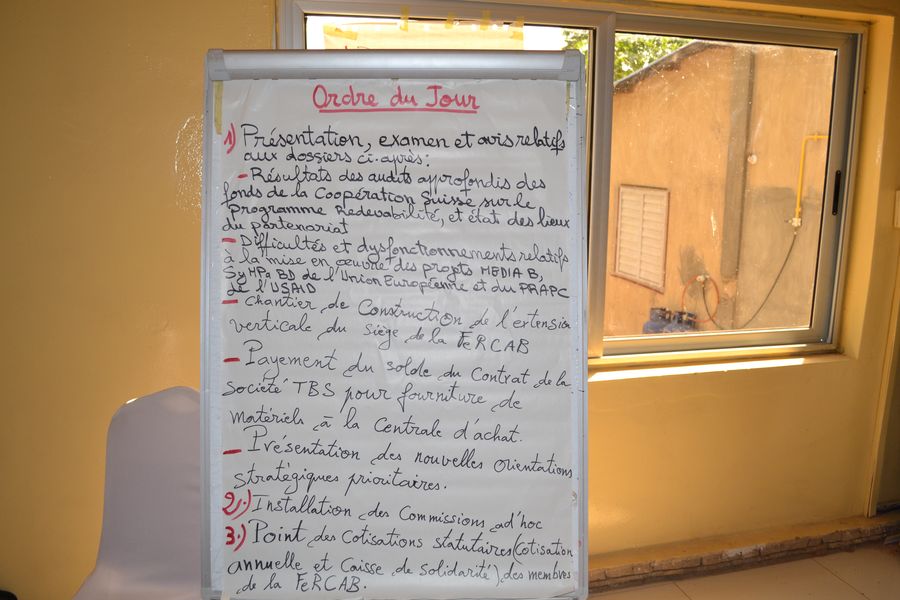 Ordre du Jour
1) Présentation, examen et avis relatifs
aux dossiers ci-après:
- Résultats des audits approfondis des
fonds de la Coopération Suisse sur le
Programme Redevabilité, et état des lieux
du partenariat
- Difficultés et dysfonctionnements relatifs
à la mise en œuvre des projets MEDIA B,
SyMPa BD de l'Union Européenne et du PRAPC
de l'USAID
- Chantier de Construction de l'extension
verticale du Siège de la FeRCAB
- Payement du solde du Contrat de la
Société TBS pour fourniture de
matériels à la Centrale d'achat.
- Présentation des nouvelles orientations
stratégiques prioritaires.
2.) Installation des Commissions ad'hoc
3.) Point des Cotisations statutaires (cotisation
annuelle et Caisse de Solidarité) des membres
de la FeRCAB.